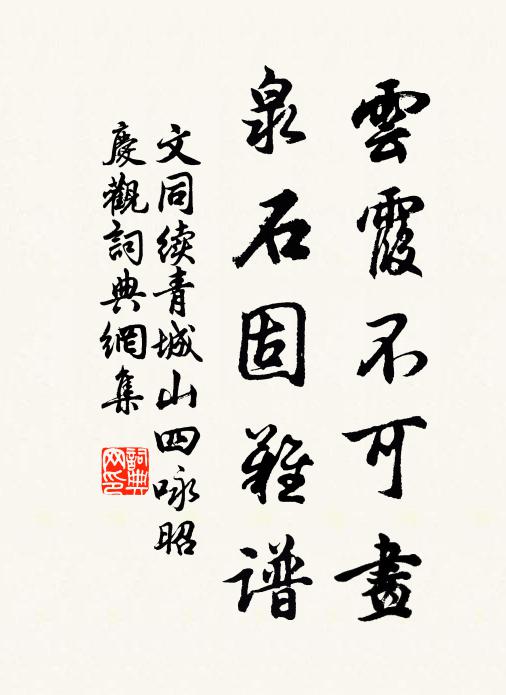 雲霞不可畫
泉石固難譜
文同續青城山四咏昭
慶觀詞典網集
詞典网印